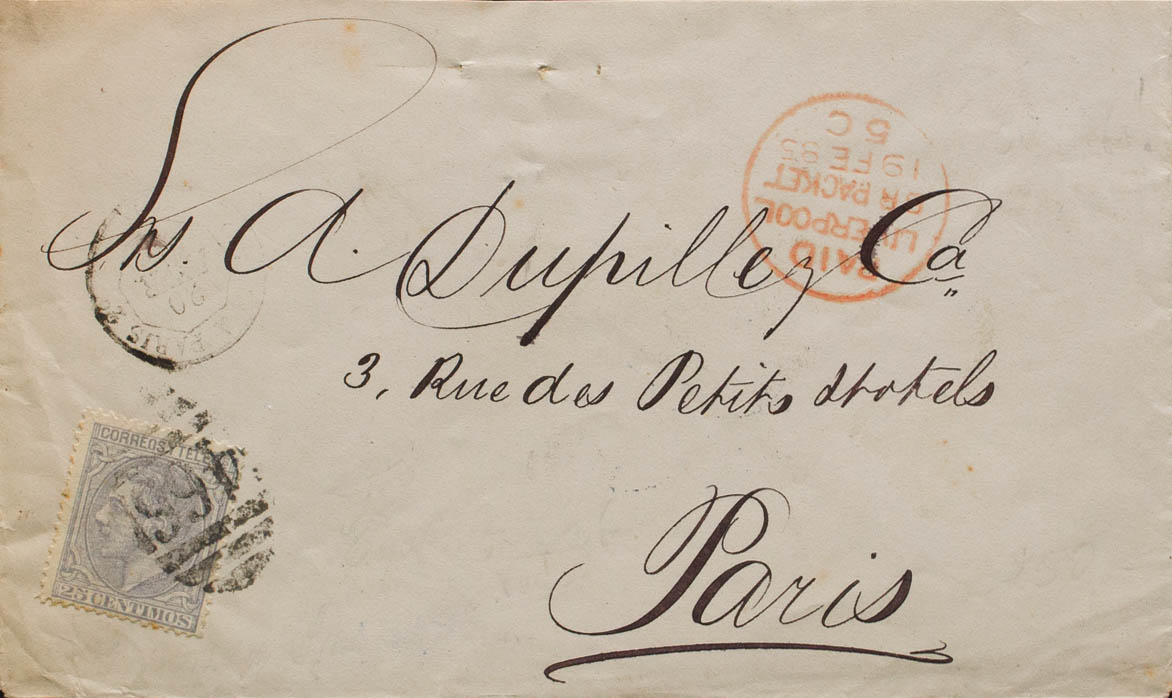 PAID
LIVERPOOL
BR PACKET
19 FE 85
5 C
Srs. A. Dupilley Ca
PARIS
3, Rue des Petits Hotels
CORREOS Y TELE
25 CENTIMOS
Paris